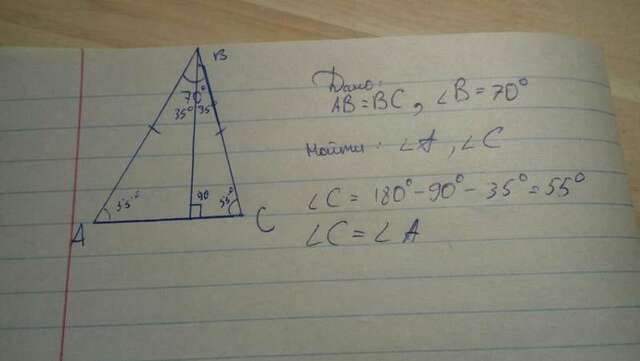 B
70°
35° 35°
55° 90 55°
A C
Дано:
AB = BC, ∠B = 70°
Найти: ∠A, ∠C
∠C = 180° - 90° - 35° = 55°
∠C = ∠A